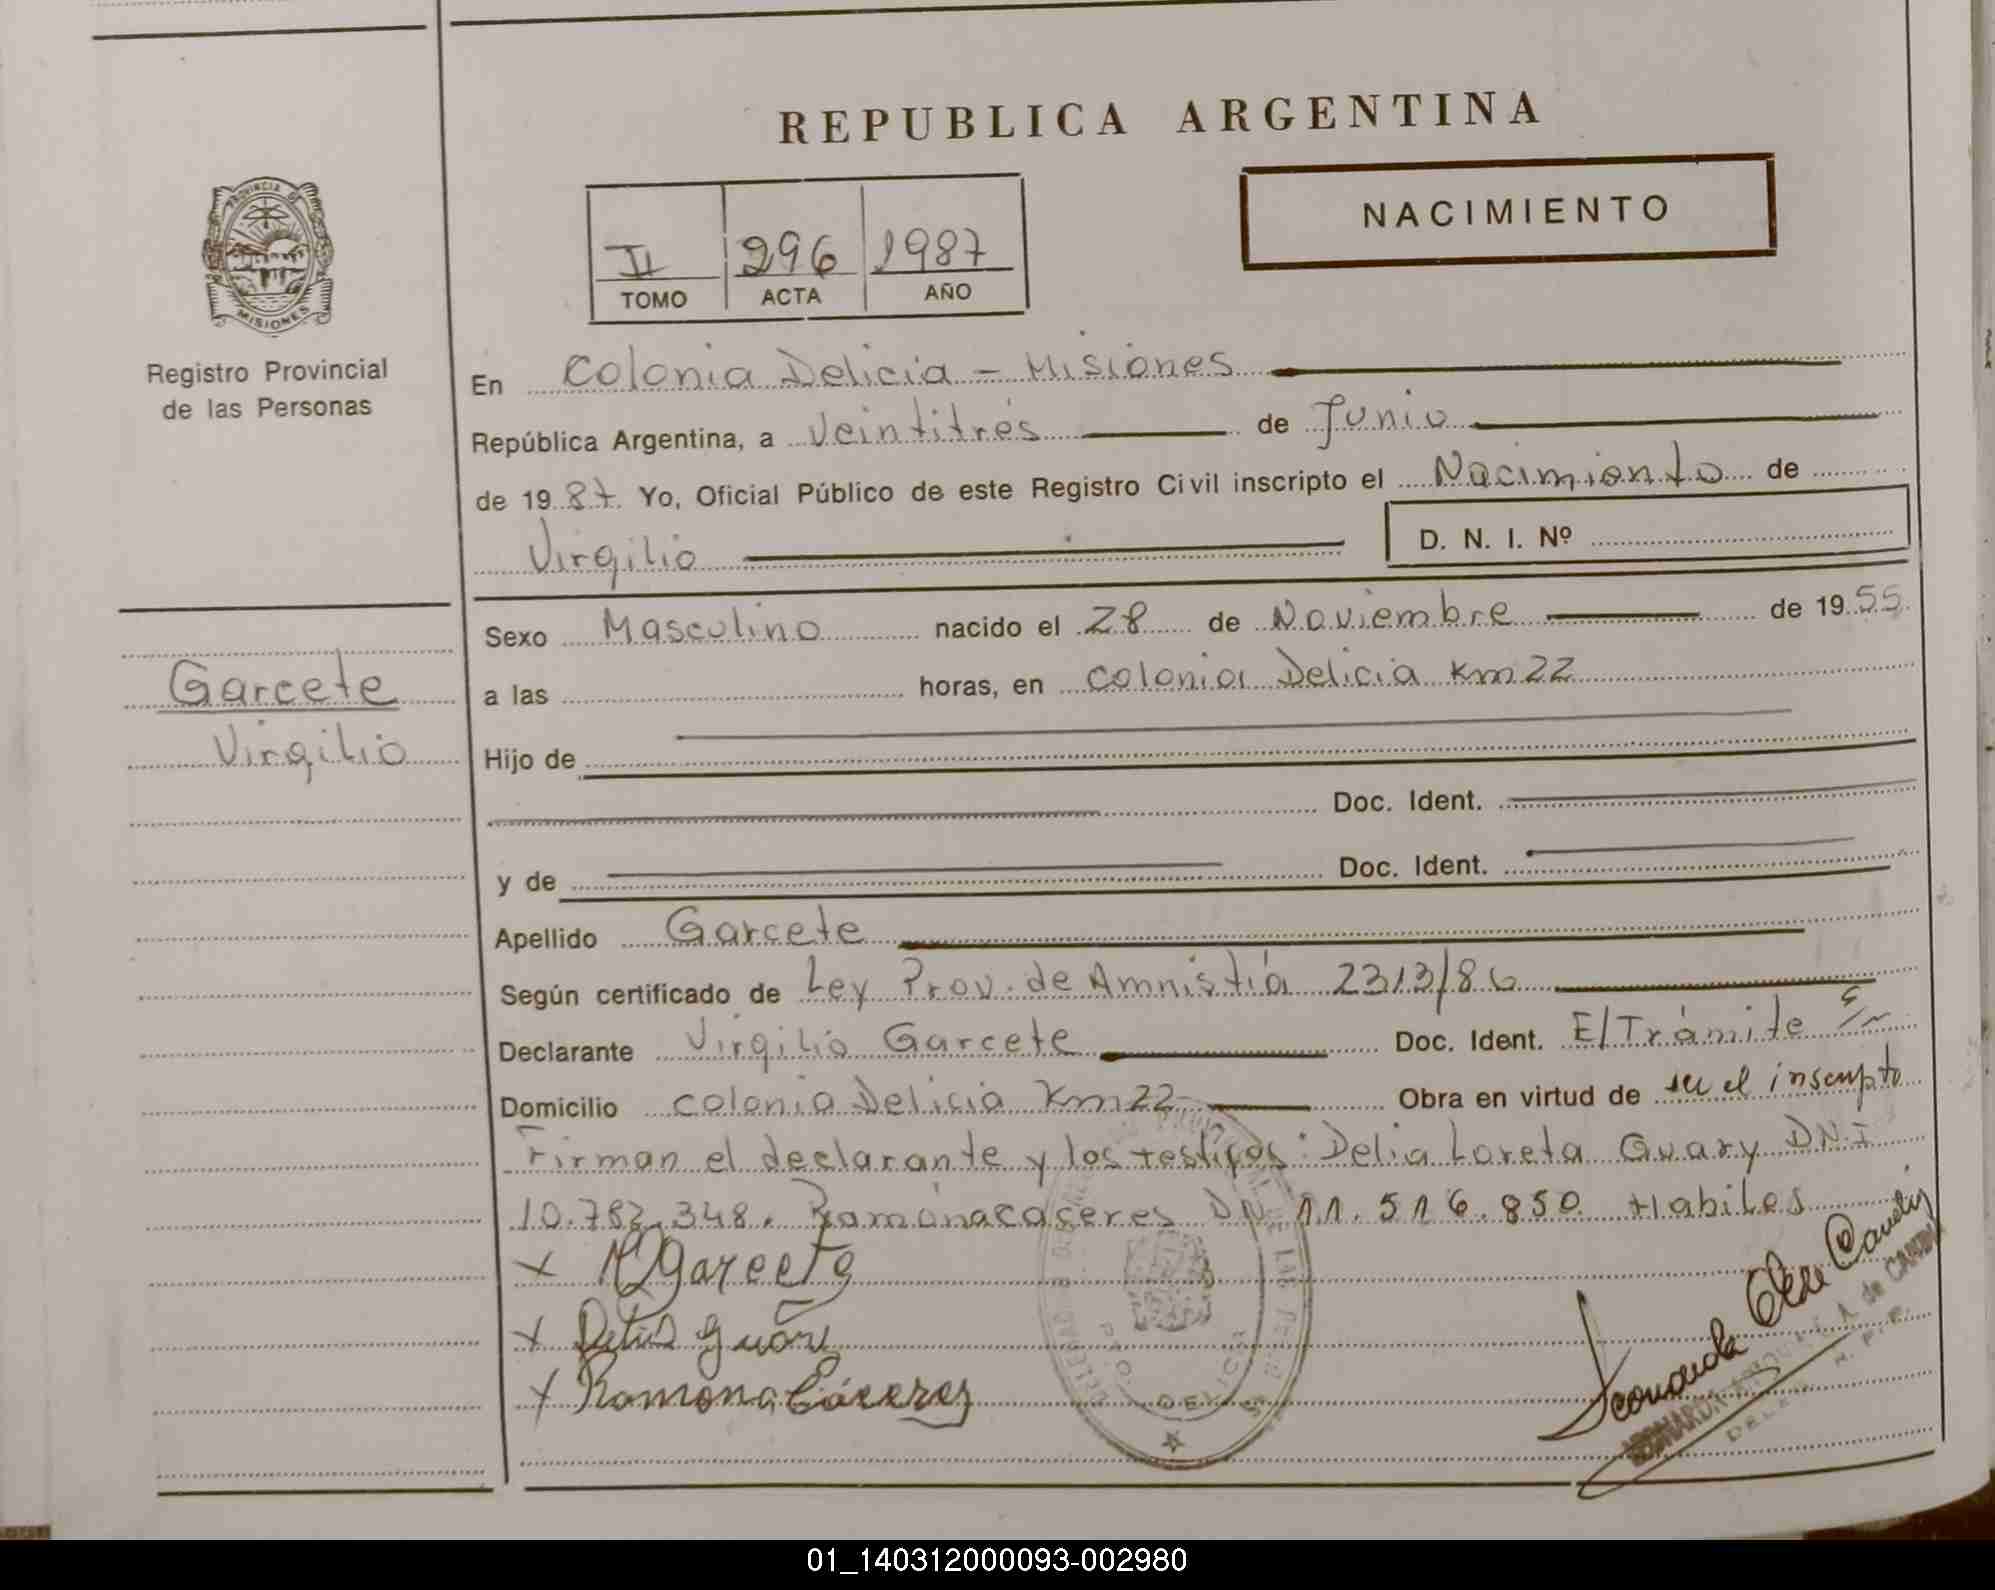 REPUBLICA ARGENTINA
NACIMIENTO
II 296 1987
TOMO ACTA AÑO
PROVINCIA DE
MISIONES
Registro Provincial
de las Personas
En Colonia Delicia - Misiones
República Argentina, a Veintitrés de Junio
de 1987. Yo, Oficial Público de este Registro Civil inscripto el Nacimiento de
Virgilio
D. N. I. Nº
Garcete
Virgilio
Sexo Masculino nacido el 28 de Noviembre de 1955
a las horas, en Colonia Delicia Km 22
Hijo de
Doc. Ident.
y de Doc. Ident.
Apellido Garcete
Según certificado de Ley Prov. de Amnistía 2313/86
Declarante Virgilio Garcete Doc. Ident. E/Trámite
Domicilio Colonia Delicia Km 22 Obra en virtud de ser el inscripto
Firman el declarante y los testigos: Delia Loreta Guary DNI
10.782.348. Ramona Caseres DNI 11.516.850 Habiles
x Garcete
x Delia
x Ramona Cáceres
01_140312000093-002980